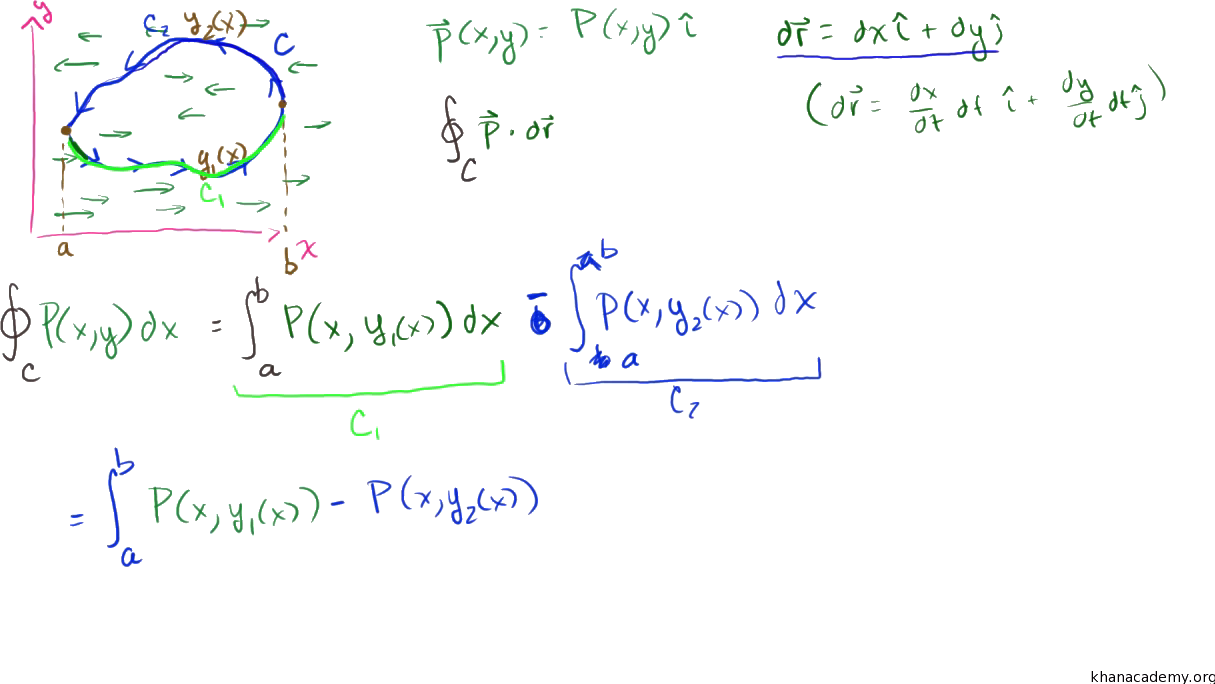 y
C₂ y₂(x) C
y₁(x)
C₁
a b x
P⃗(x,y) = P(x,y) î
dr⃗ = dx î + dy ĵ
(dr⃗ = dx/dt dt î + dy/dt dt ĵ)
∮_C P⃗ · dr⃗
∮_C P(x,y) dx = ∫_a^b P(x, y₁(x)) dx - ∫_a^b P(x, y₂(x)) dx
C₁ C₂
= ∫_a^b P(x, y₁(x)) - P(x, y₂(x))
khanacademy.org